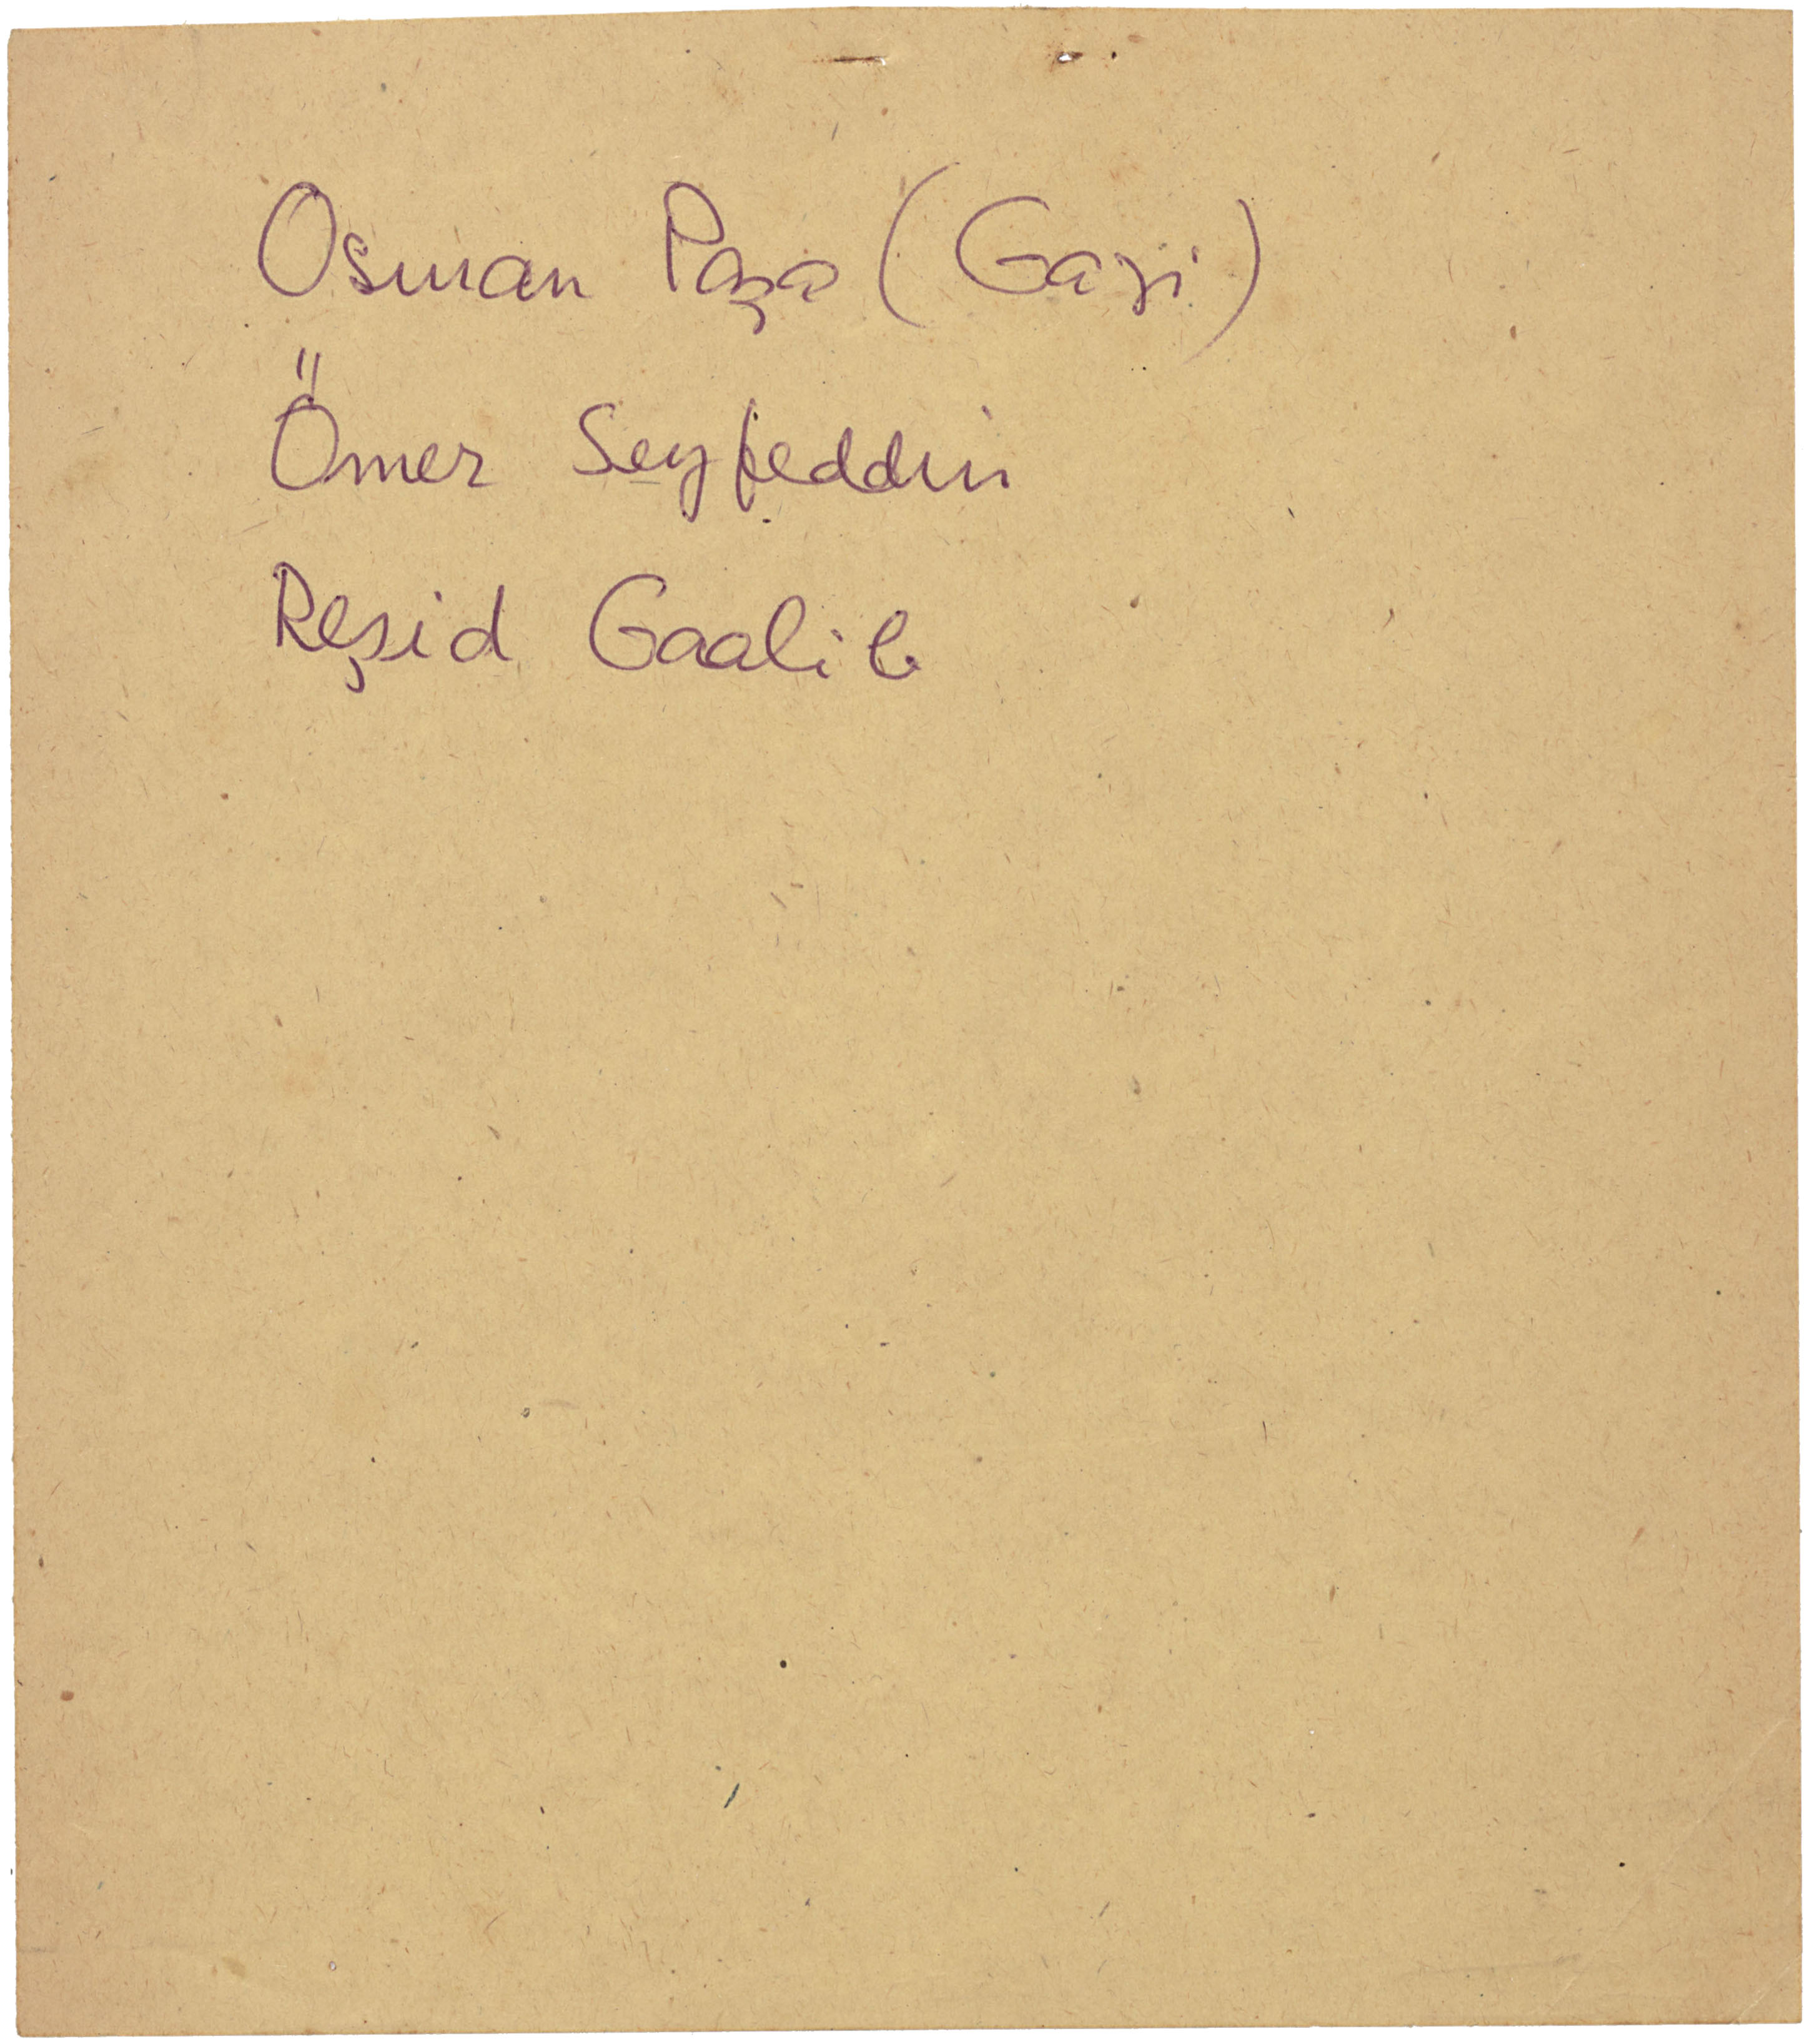 Osman Paşa (Gazi)
Ömer Seyfeddin
Reşid Gaalib